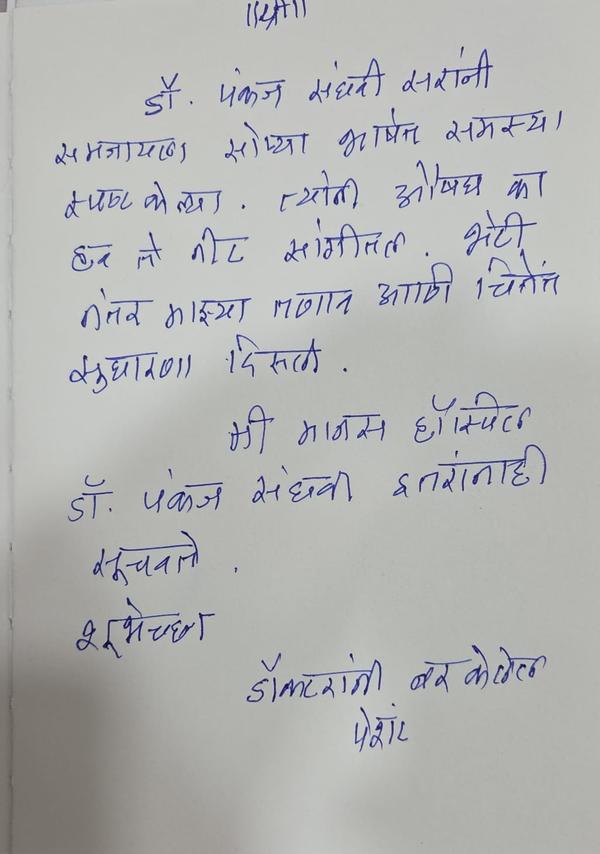 ॥श्री॥
डॉ. पंकज संघवी सरांनी
समजायला सोप्या भाषेत समस्या
स्पष्ट केल्या. त्यांनी औषध का
हव ते नीट सांगीतल. भेटी
नंतर माझ्या तणाव आणि चिंतेत
सुधारणा दिसली.
मी मानस हॉस्पिटल
डॉ. पंकज संघवी इतरांनाही
सूचवतो.
शुभेच्छा
डॉक्टरांनी बर केलेल
पेशंट